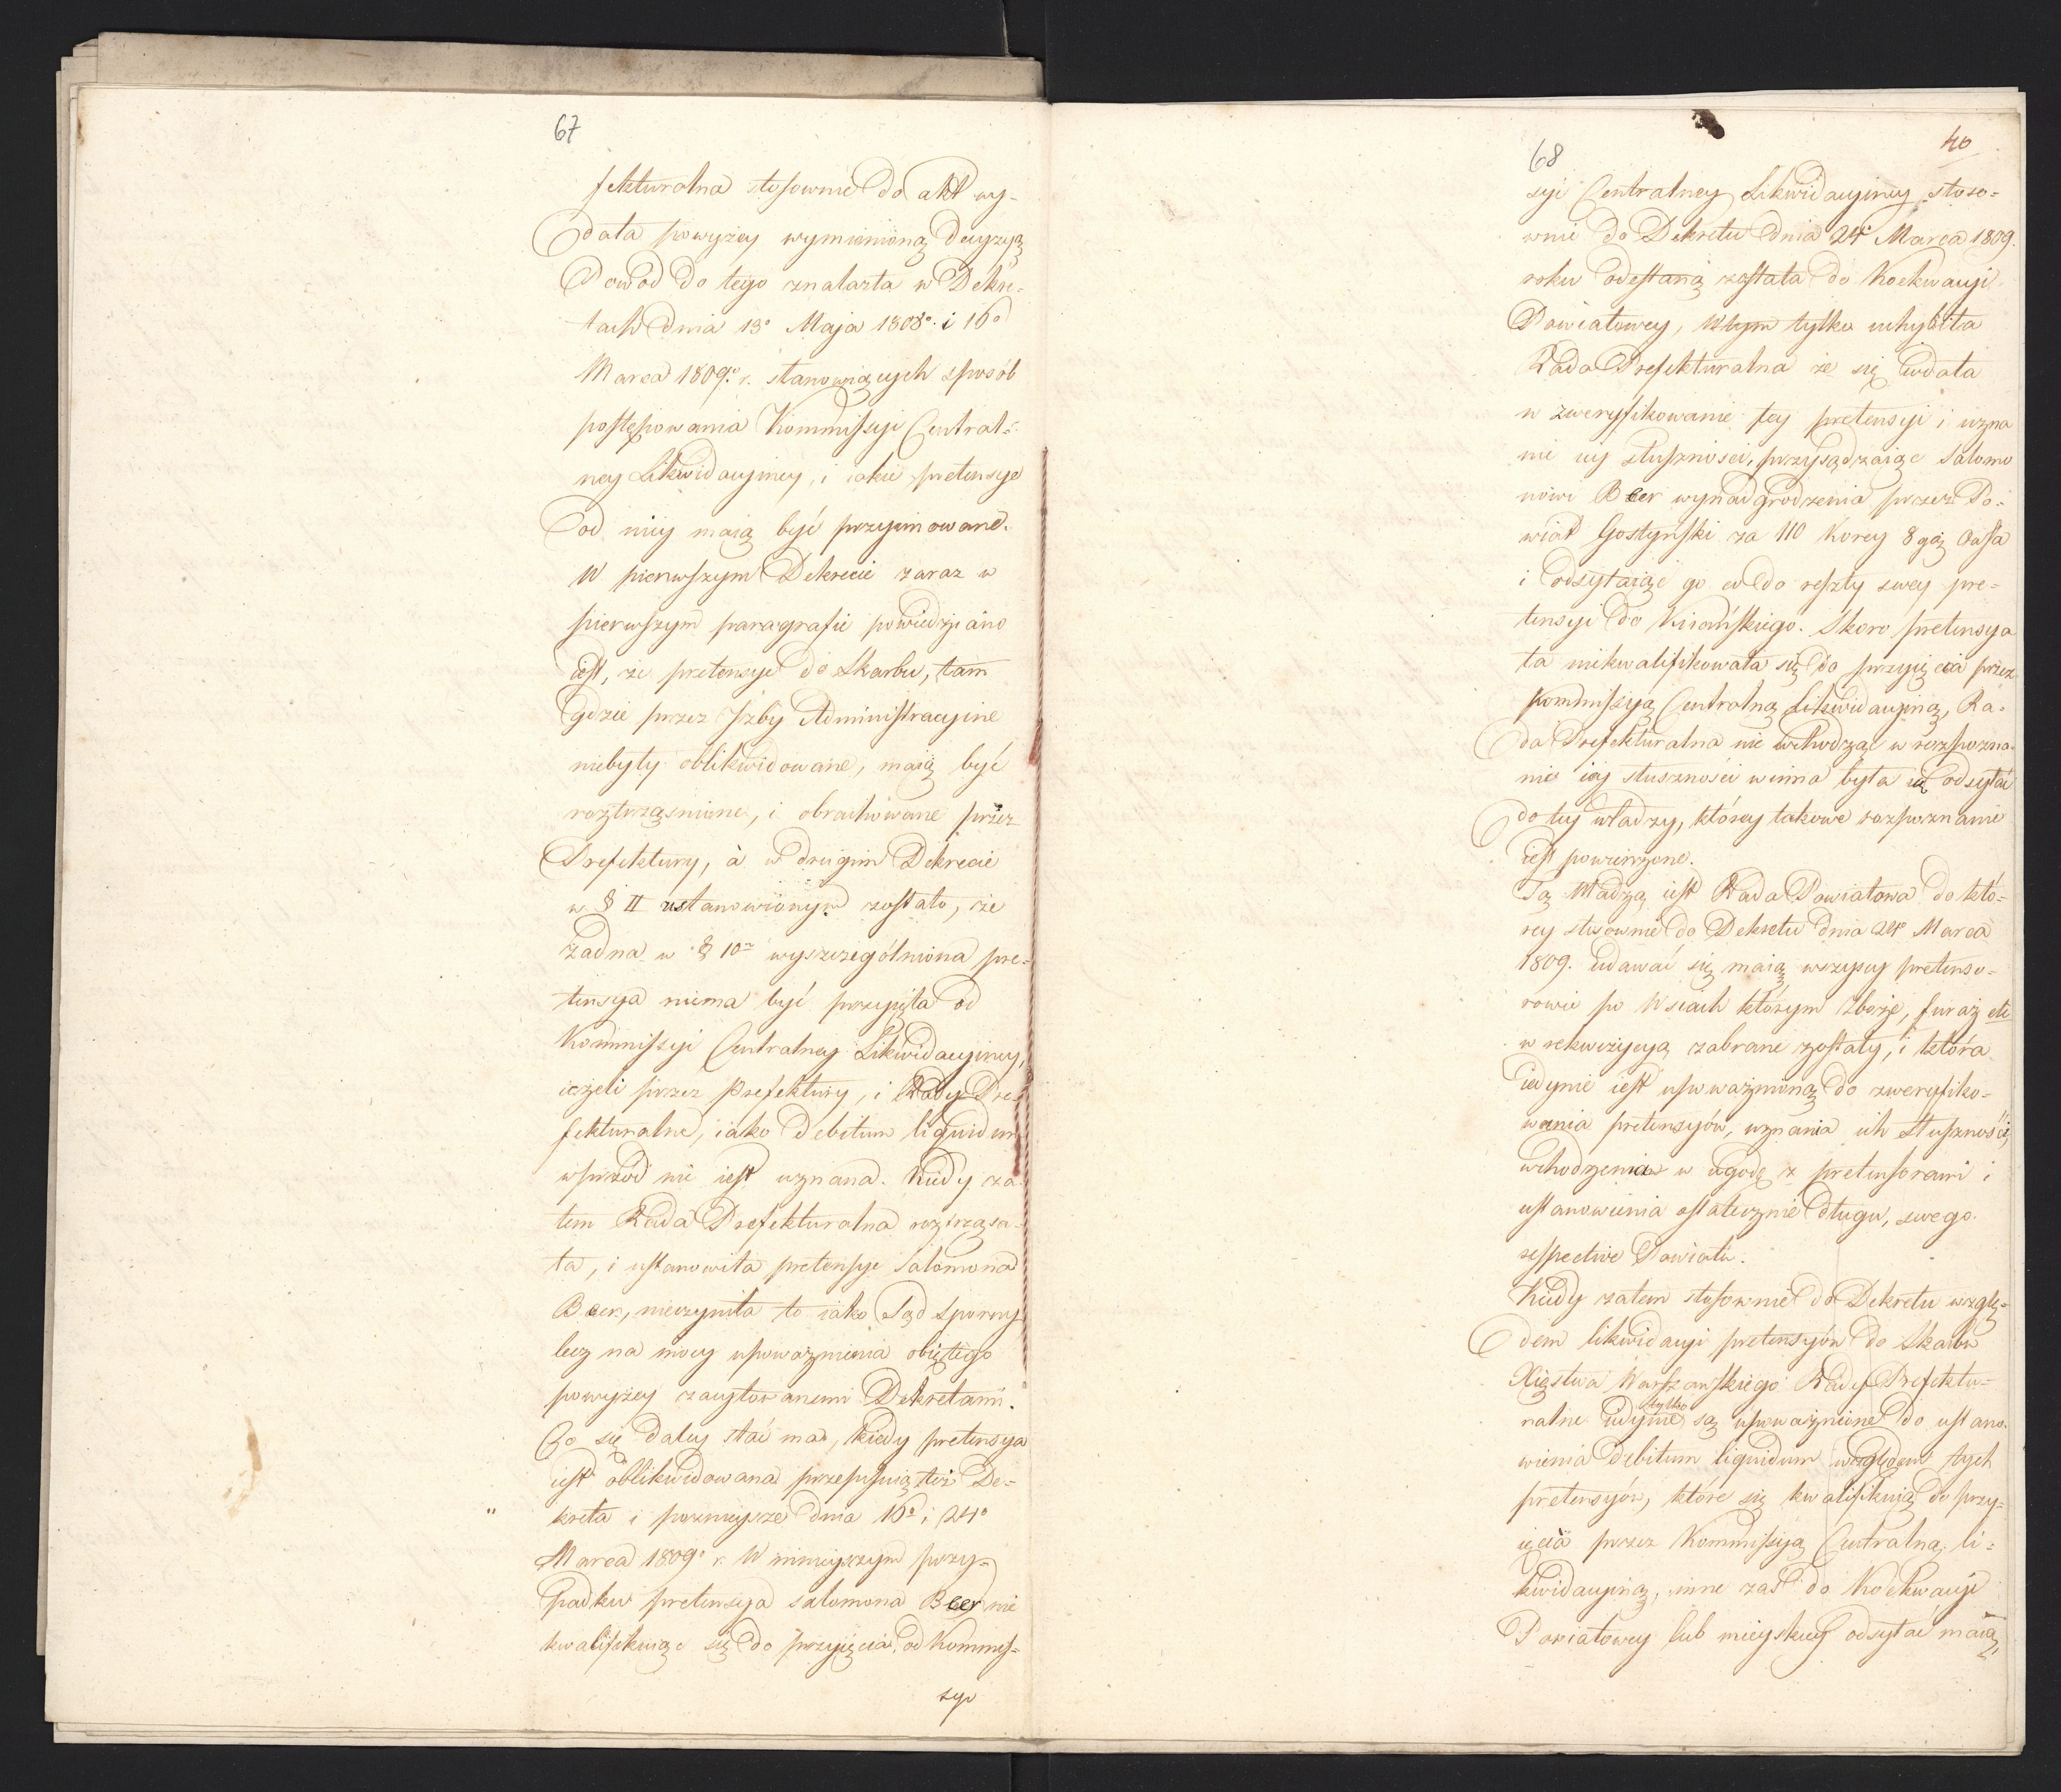 67
fekturalna stosownie do akt wy-
dała powyżey wymienioną decyzyą
Dowód do tego znalazła w Dekre-
tach dnia 13º Maja 1808º i 16º
Marca 1809º r. stanowiących sposób
postępowania Kommissyi Central-
ney Likwidacyiney, i iakie pretensye
od niey maią być przyimowane.
W pierwszym Dekrecie zaraz w
pierwszym paragrafie powiedziano
iest, że pretensye do Skarbu, tam
gdzie przez Izby Administracyine
niebyły oblikwidowane, maią być
roztrząśnione, i obrachowane przez
Prefektury, à w drugim Dekrecie
w § II ustanowionym zostało, że
żadna w § 10m wyszczególniona pre-
tensya niema być przyięta od
Kommissyi Centralney Likwidacyiney,
ieżeli przez Prefektury, i Rady Pre-
fekturalne, iako Debitum liquidum
wprzód nie iest uznana. Kiedy za-
tem Rada Prefekturalna roztrząsa-
ła, i ustanowiła pretensye Salomona
Beer, nieczyniła to iako Sąd sporny
lecz na mocy upoważnienia obiętego
powyżey zacytowanemi Dekretami.
Co się daley stać ma, kiedy pretensya
iest oblikwidowana przepisuią też De-
kreta i poźnieysze dnia 16º i 24º
Marca 1809º r. W ninieyszym przy-
padku pretensya Salomona Beer nie
kwalifikuiąc się do przyięcia od Kommis-
syi
40
68
syi Centralney Likwidacyiney stoso-
wnie do Dekretu dnia 24º Marca 1809.
roku odesłaną została do Koekwacyi
Powiatowey, W tym tylko uchybiła
Rada Prefekturalna że się wdała
w zweryfikowanie tey pretensyi i uzna
nie iey słuszności, przysądzaiąc Salomo
nowi Beer wynadgrodzenia przez Po-
wiat Gostyński za 110 Korcy 8 gcy Owsa
i odsyłaiąc go co do reszty swey pre-
tensyi do Kirańskiego. Skoro pretensya
ta niekwalifikowała się do przyięcia przez
Kommissyą Centralną Likwidacyiną, Ra-
da Prefekturalna nie wchodząc w rozpozna-
nie iey słuszności winna była ią odsyłać
do tey władzy, którey takowe rozpoznanie
iest powierzone.
Tą Władzą iest Rada Powiatowa do któ-
rey stosownie do Dekretu dnia 24º Marca
1809. udawać się maią wszyscy pretenso-
rowie po Wsiach którym zboże, furaż etc
w rekwizycyą zabrane zostały, i która
iedynie iest upoważnioną do zweryfiko-
wania pretensyów, uznania ich słuszności,
wchodzenia w ugodę z pretensorami i
ustanowienia ostatecznie długu, swego
respective Powiatu.
Kiedy zatem stosownie do Dekretu wzglę-
dem likwidacyi pretensyów do Skarbu
Xięstwa Warszawskiego Rady Prefektu-
ralne iedynie tylko są upoważnione do ustano-
wienia debitum liquidum względem tych
pretensyów, które się kwalifikuią do przy-
ięcia przez Kommissyą Centralną li-
kwidacyiną, inne zaś do Koekwacyi
Powiatowey lub mieyskiey odsyłać maią,